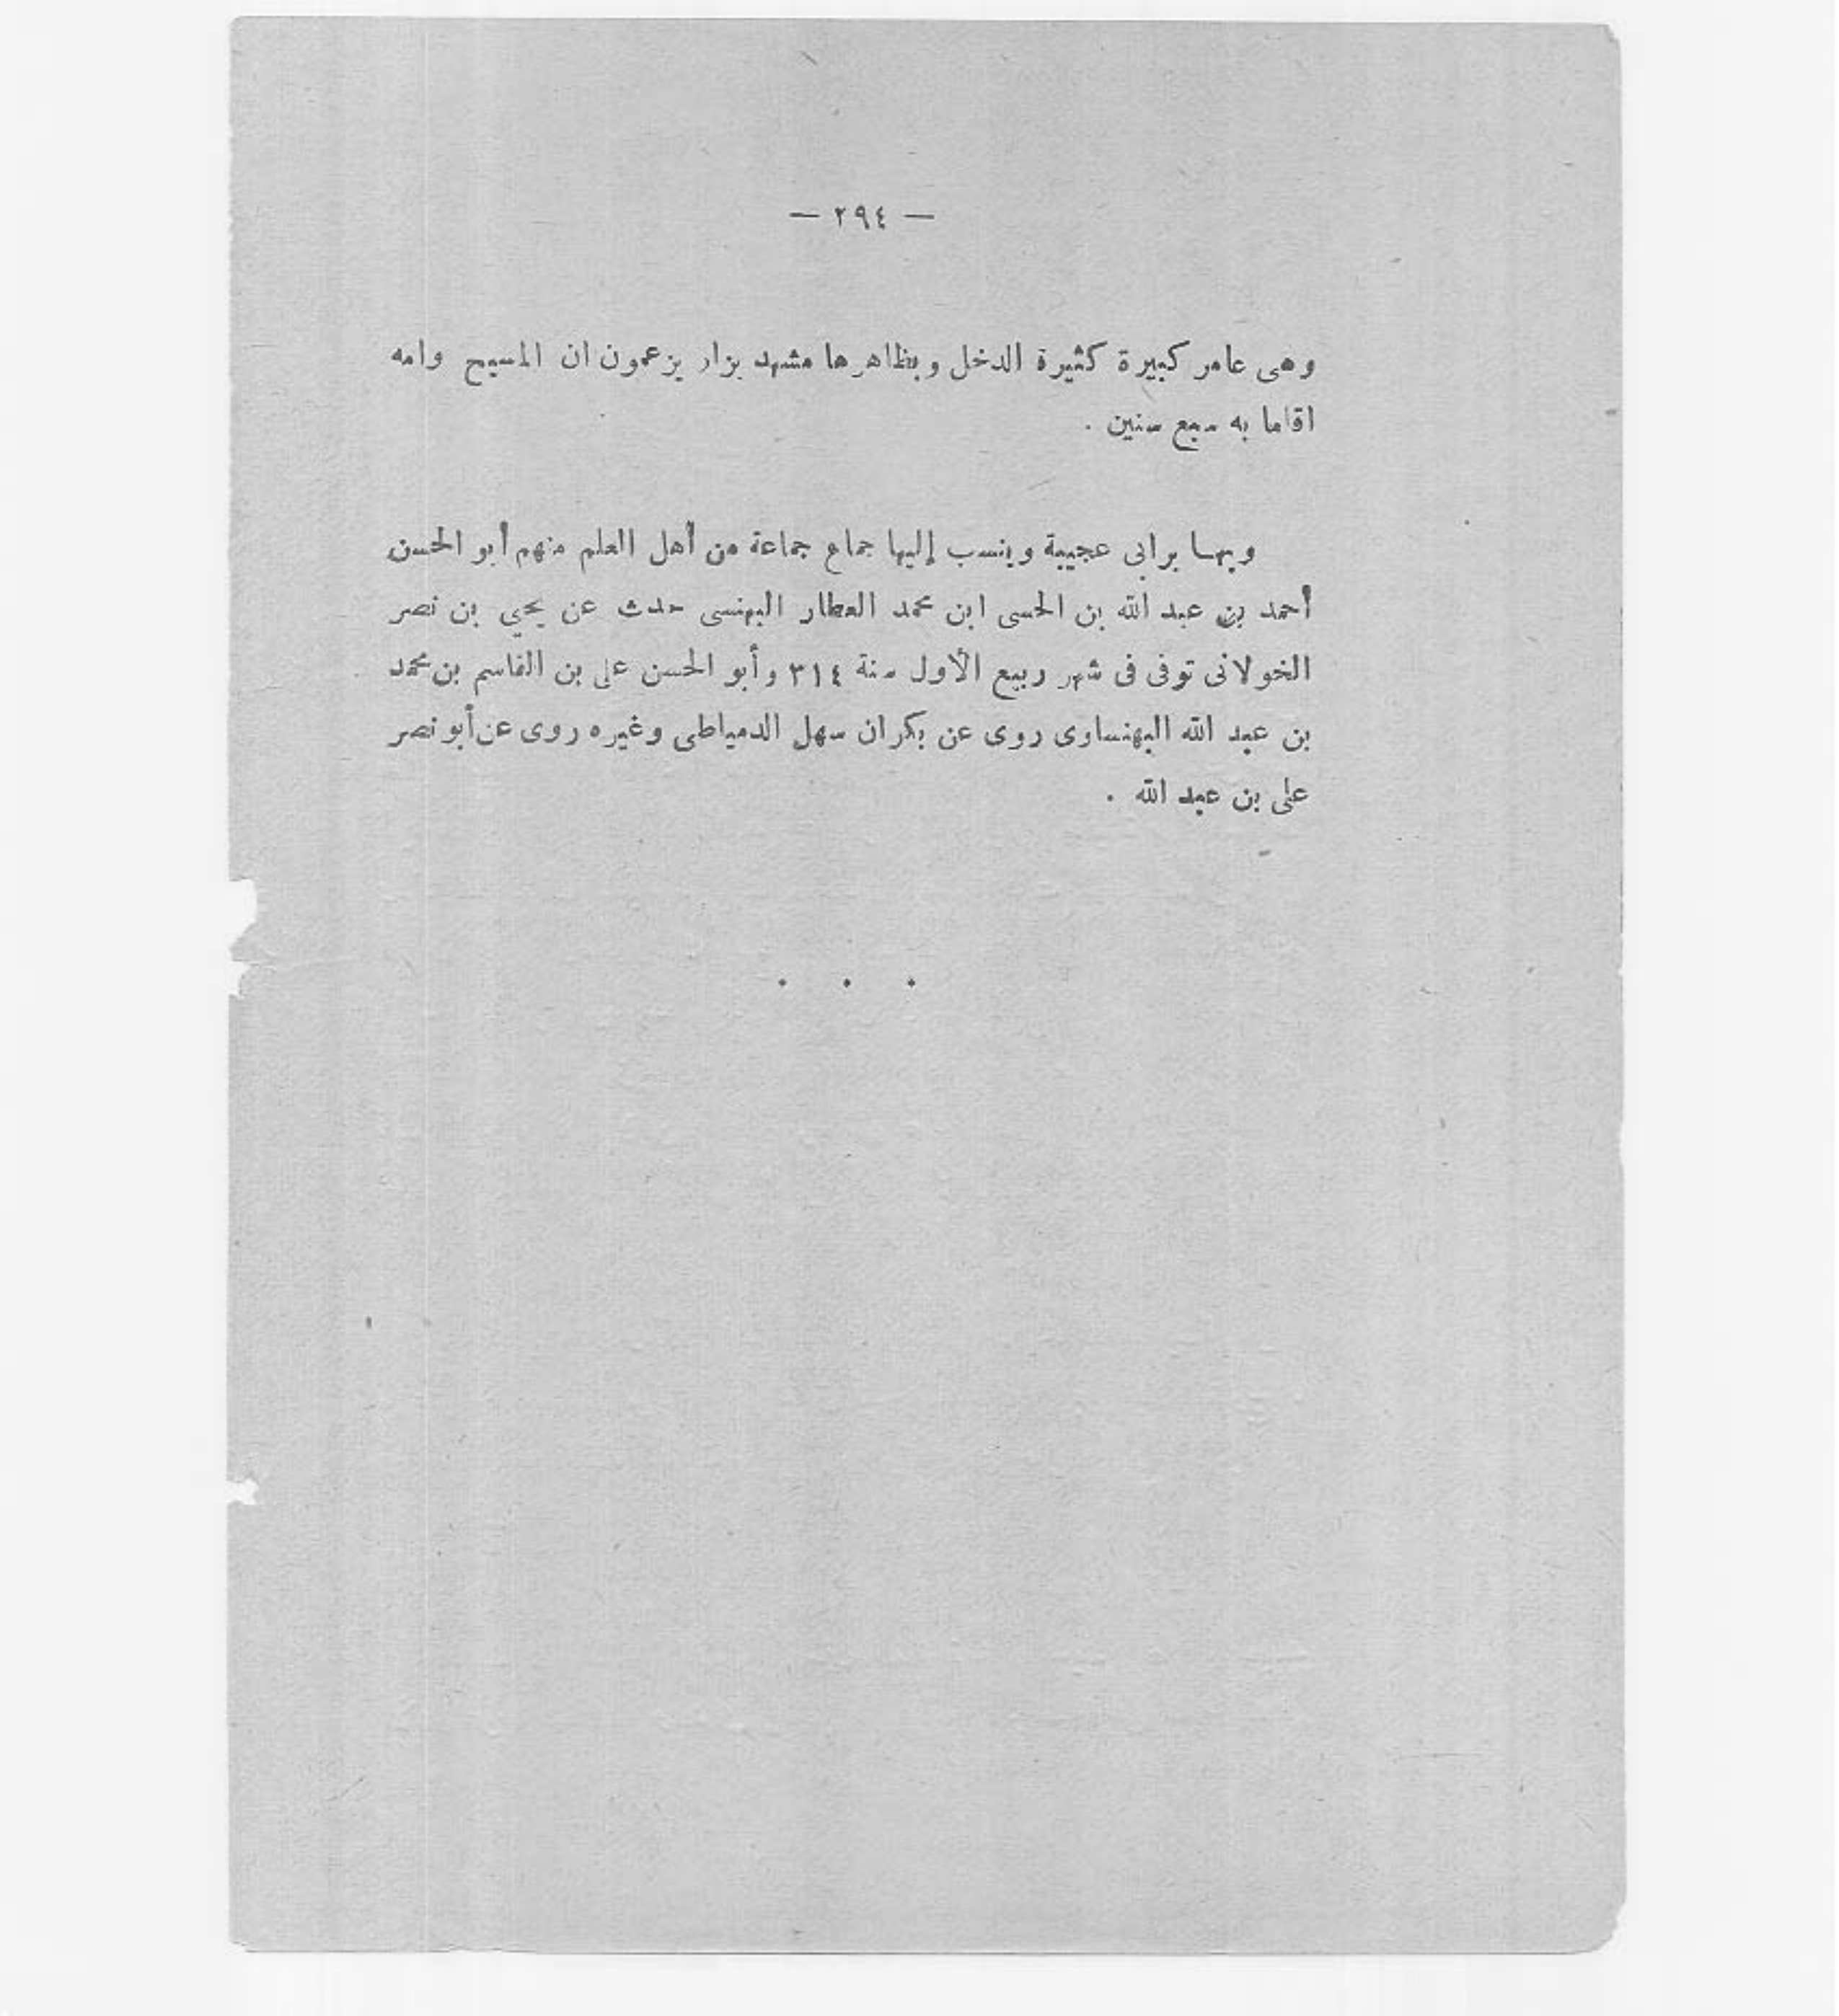 — ٢٩٤ —
وهى عامر كبيرة كثيرة الدخل وبظاهرها مشهد بزار يزعمون ان المسيح وامه
اقاما به سبع سنين .
وبها برابى عجيبة وينسب إليها جماع جماعة من أهل العلم منهم أبو الحسن
أحمد بن عبد الله بن الحسى ابن محمد العطار البهنسى حدث عن يحيي بن نصر
الخولانى توفى فى شهر ربيع الأول سنة ٣١٤ وأبو الحسن على بن القاسم بن محمد
بن عبد الله البهنساوى روى عن بكران سهل الدمياطى وغيره روى عن أبو نصر
على بن عبد الله .
. . .